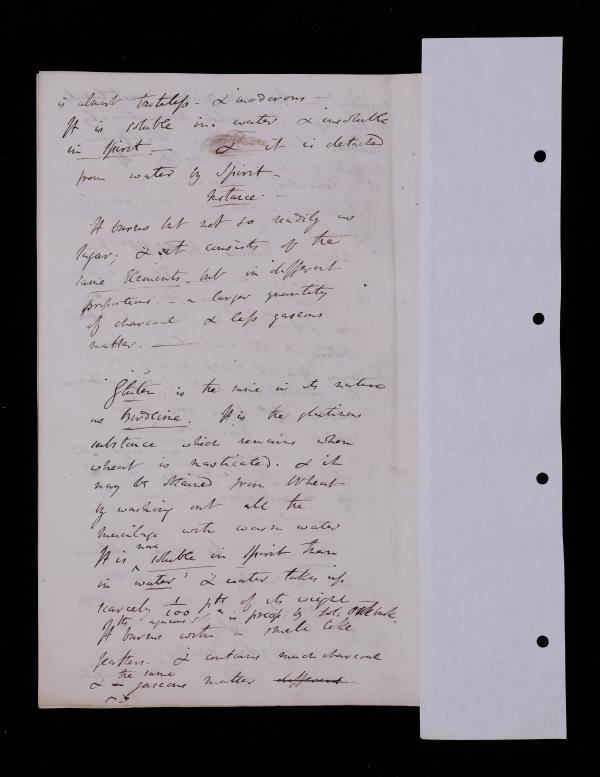 is almost tasteless - & inodorous -
It is soluble in water & insoluble
in Spirit. - & it is detached
from water by Spirit -
Instance. -
It burns but not so readily as
Sugar; & it consists of the
same Elements - but in different
proportions. - a larger quantity
of charcoal & less gaseous
matter. -
Gluten is the same in its nature
as Birdlime. It is the glutinous
substance which remains when
wheat is masticated. & it
may be obtained from Wheat
by washing out all the
Mucilage with warm water
It is more soluble in Spirit than
in water & water takes up
scarcely 1/100 pt of its weight
the aqueous is precip: by Sol: Oakbark.
It burns with a smell like
feathers. - & contains much charcoal
& the same gaseous matter different